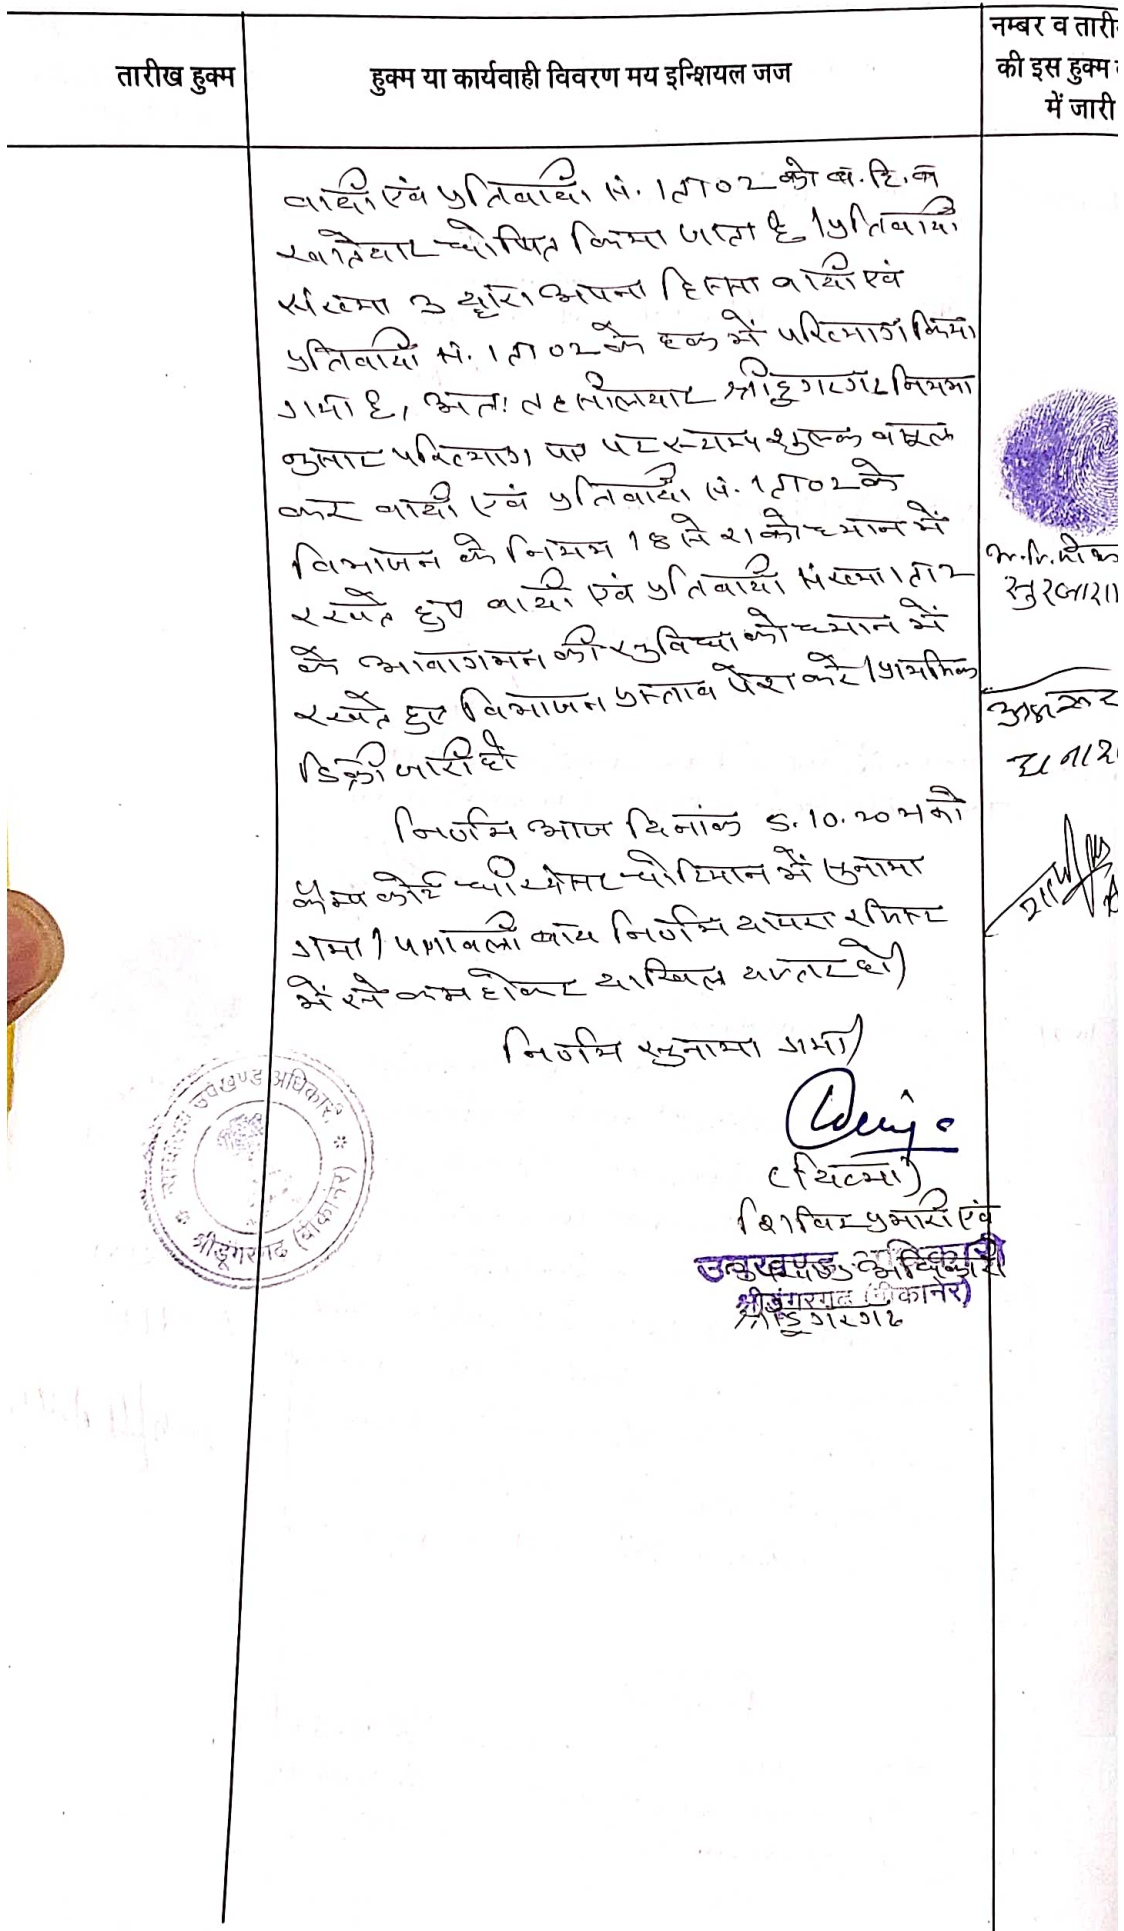 तारीख हुक्म
हुक्म या कार्यवाही विवरण मय इन्शियल जज
नम्बर व तारी
की इस हुक्म
में जारी
वादी एवं प्रतिवादी सं. 1 ता 02 को ब. हि. ब
खातेदार घोषित किया जाता है। प्रतिवादी
संख्या 3 द्वारा अपना हिस्सा वादी एवं
प्रतिवादी सं. 1 ता 02 के हक में परित्याग किया
गया है, अतः तहसीलदार श्रीडूंगरगढ नियमा
नुसार परित्याग पत्र पर स्टाम्प शुल्क वसूल
कर वादी एवं प्रतिवादी सं. 1 ता 02 के
विभाजन के नियम 18 से 21 को ध्यान में
रखते हुए वादी एवं प्रतिवादी संख्या 1 ता 2
के आवागमन की सुविधा को ध्यान में
रखते हुए विभाजन प्रस्ताव पेश करें। प्राथमिक
डिक्री जारी हो
निर्णय आज दिनांक 5.10.2021 को
कैम्प कोर्ट में सुनाया
गया। पत्रावली बाद निर्णय दायरा रजिस्टर
में से कम होकर दाखिल दफ्तर हो।
निर्णय सुनाया गया।
(दिव्या)
शिविर प्रभारी एवं
उपखण्ड अधिकारी
श्रीडूंगरगढ (बीकानेर)
श्रीडूंगरगढ
न्यायालय उपखण्ड अधिकारी,
श्रीडूंगरगढ (बीकानेर)